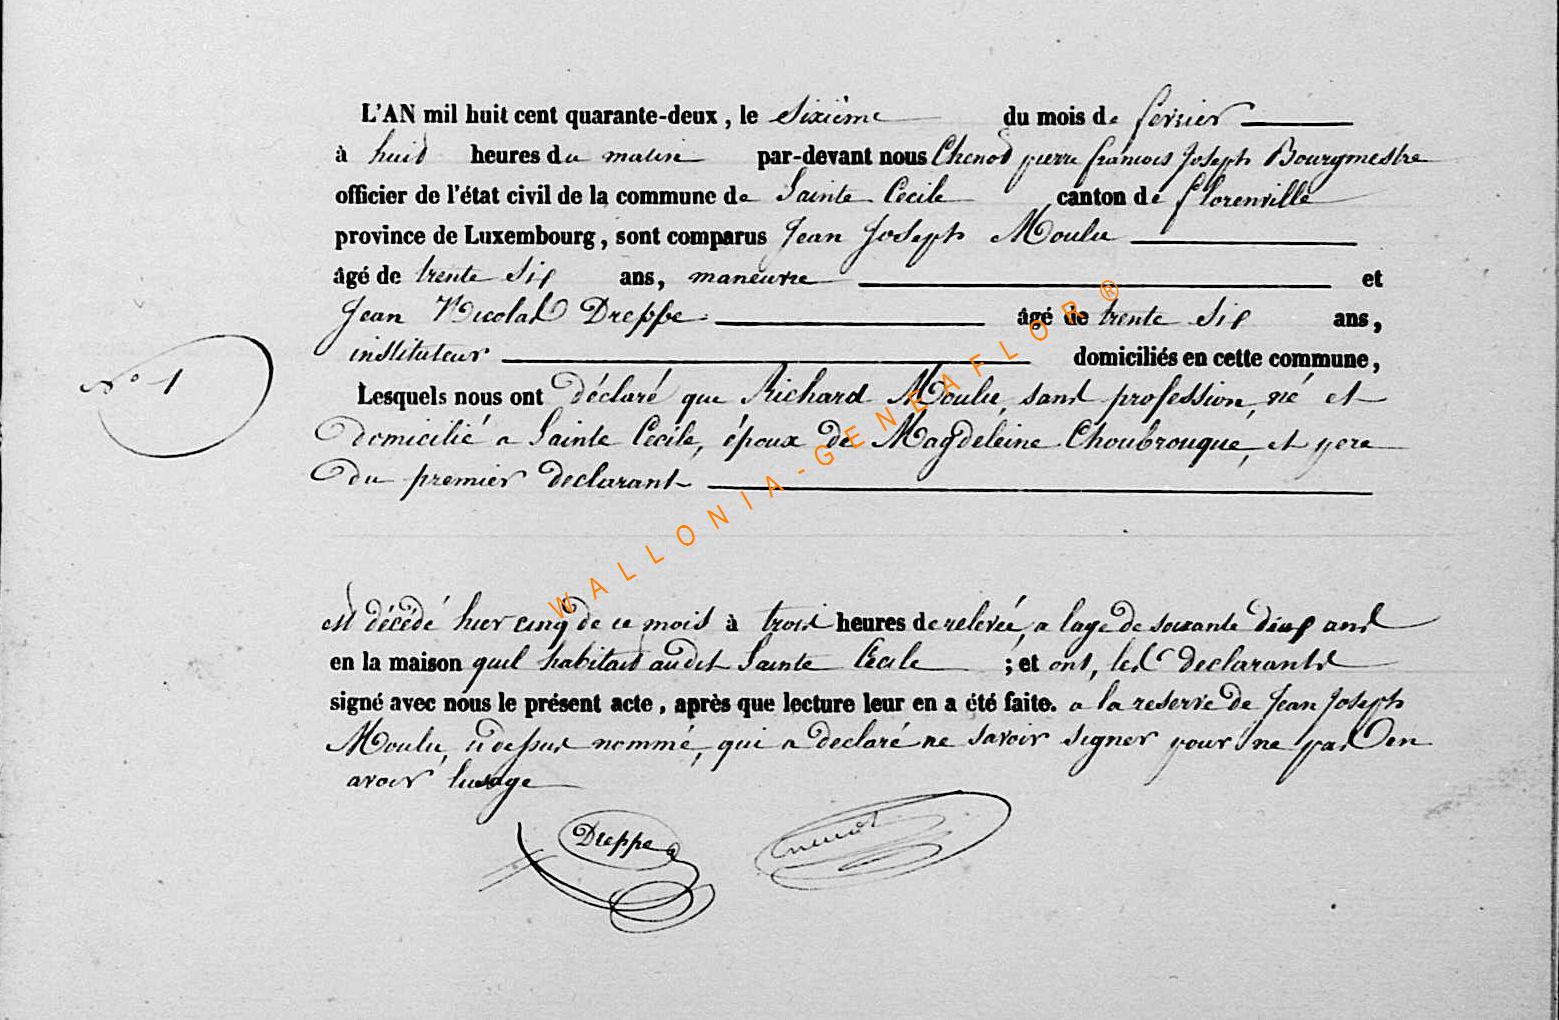 L'AN mil huit cent quarante-deux, le sixième du mois de fevrier
à huit heures du matin par-devant nous Chenot pierre francois Joseph Bourgmestre
officier de l'état civil de la commune de Sainte Cecile canton de florenville
province de Luxembourg, sont comparus Jean Joseph Moulu
âgé de trente six ans, maneuvre et
Jean Nicolas Dreppe âgé de trente six ans,
instituteur domiciliés en cette commune,
N° 1
Lesquels nous ont déclaré que Richard Moulu, sans profession, né et
domicilié a Sainte Cecile, époux de Magdeleine Choubrouque, et pere
du premier declarant
est décédé hier cinq de ce mois à trois heures de relevée, a lage de soixante dix ans
en la maison quil habitait audit Sainte Cécile ; et ont, les declarants
signé avec nous le présent acte, après que lecture leur en a été faite. a la reserve de Jean Joseph
Moulu, ci dessus nommé, qui a declaré ne savoir signer pour ne pas en
avoir lusage
Dreppe Chenot
WALLONIA-GENEAFLOR®